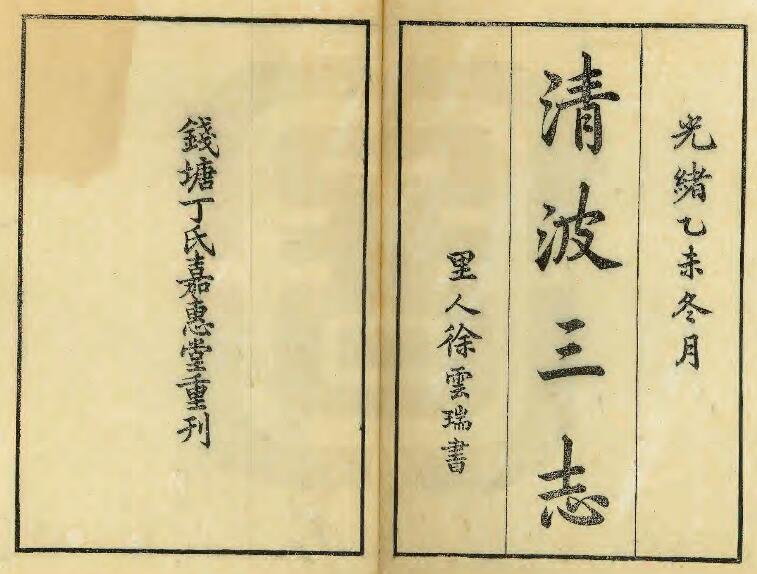 光緒乙未冬月
清波三志
里人徐雲瑞書
錢塘丁氏嘉惠堂重刊